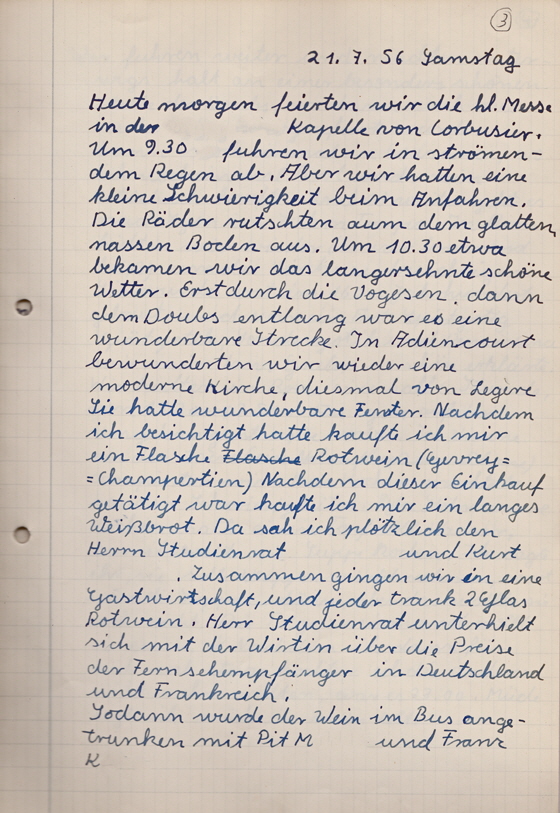 3
21. 7. 56 Samstag
Heute morgen feierten wir die hl. Messe
in der Kapelle von Corbusier.
Um 9.30 fuhren wir in strömen-
dem Regen ab. Aber wir hatten eine
kleine Schwierigkeit beim Anfahren.
Die Räder rutschten aum dem glatten,
nassen Boden aus. Um 10.30 etwa
bekamen wir das langersehnte schöne
Wetter. Erst durch die Vogesen, dann
dem Doubs entlang war es eine
wunderbare Strecke. In Adiencourt
bewunderten wir wieder eine
moderne Kirche, diesmal von Legère
Sie hatte wunderbare Fenster. Nachdem
ich besichtigt hatte kaufte ich mir
ein Flasche Flasche Rotwein (Gevrey=
=Champertien) Nachdem dieser Einkauf
getätigt war kaufte ich mir ein langes
Weißbrot. Da sah ich plötzlich den
Herrn Studienrat und Kurt
. Zusammen gingen wir in eine
Gastwirtschaft, und jeder trank 2 Glas
Rotwein. Herr Studienrat unterhielt
sich mit der Wirtin über die Preise
der Fernsehempfänger in Deutschland
und Frankreich.
Sodann wurde der Wein im Bus ange-
trunken mit Pit M und Franz
K